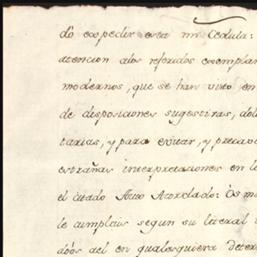 do expedir esta mi Cedula:
atencion alos referidos exemplar
modernos, que se han visto en
de disposiciones sugestivas, dol
tarias, y para evitar, y precav
estrañas interpretaciones en l
el citado Auto Acordado: Os m
le cumplais segun su literal
dòos del en qualesquiera deter